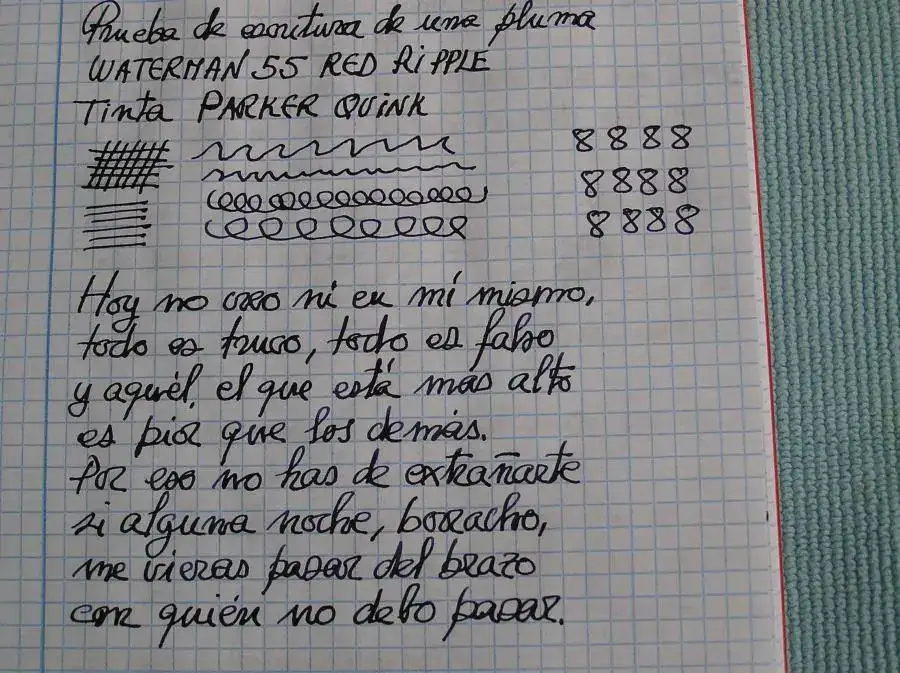 Prueba de escritura de una pluma
WATERMAN 55 RED RIPPLE
Tinta PARKER QUINK
8 8 8 8
8 8 8 8
8 8 8 8
Hoy no creo ni en mí mismo,
todo es truco, todo es falso
y aquél, el que está más alto
es pior que los demás.
Por eso no has de extrañarte
si alguna noche, borracho,
me vieras pasar del brazo
con quién no debo pasar.